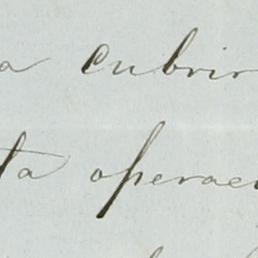 a cubrir
ta operac